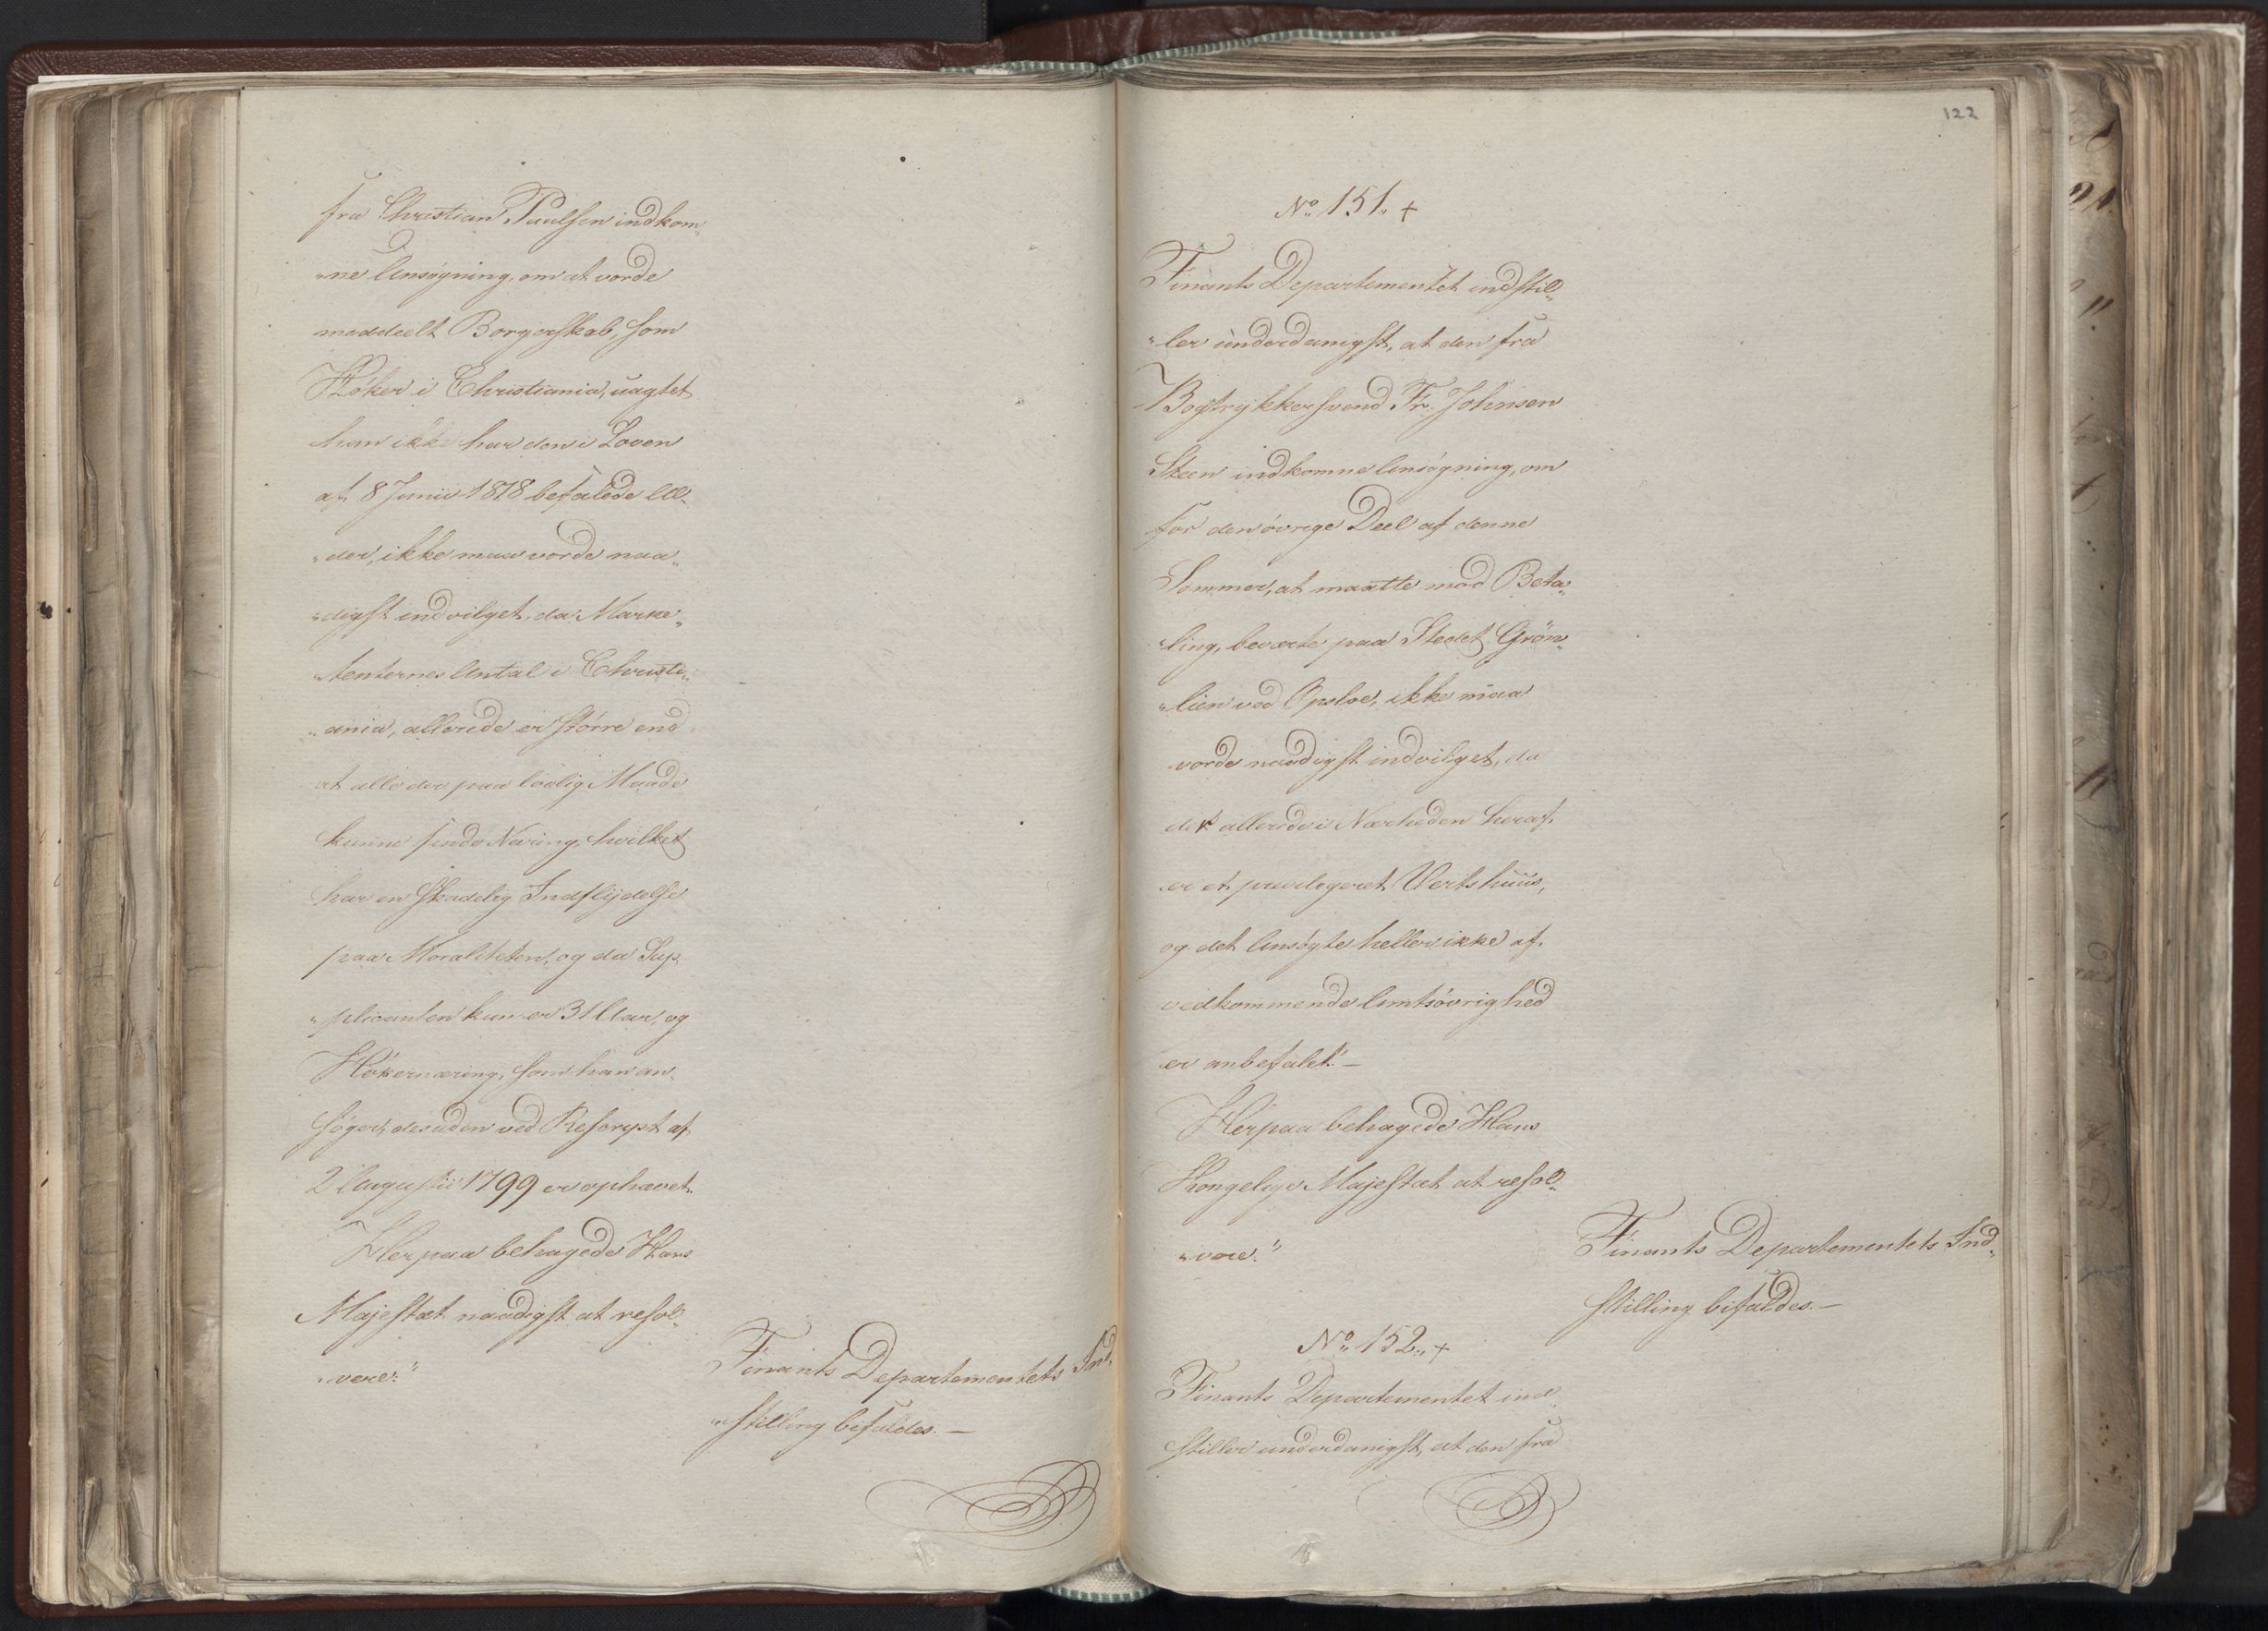 fra Christian Paulsen indkom„
„ne Ansøgning, om at vorde
meddeelt Borgerskab, som
Høker i Christiania, uagtet
han ikke har den i Loven
af 8 Junii 1818 befalede Al„
„der, ikke maa vorde naa„
„digst indvilget, da Marke„
„tenternes Antal i Christi„
„ania, allerede er større end
at alle der paa lovlig Maade
kunne finde Næring, hvilket
har en skadelig Indflydelse
paa Moraliteten, og da Sup„
„plicanten kun er 31 Aar, og
Høkernæring, som han an„
søger, desuden ved Rescript af
2 Augustii 1799 er ophævet.
Herpaa behagede Hans
Majestæt naadigst at resol„
„vere:"
Finants Departementets Ind„
„stilling bifaldes. —
122
No. 151. +
Finants Departementet indstil„
„ler underdanigst, at den fra
Bogtrykkersvend Fr. Johnsen
Steen indkomne Ansøgning, om
for den øvrige Deel af denne
Sommer, at maatte mod Beta„
„ling, beværte paa Stedet Grøn„
„lien ved Opsloe, ikke maa
vorde naadigst indvilget, da
der allerede i Nærheden heraf
er et privilegeret Vertshuus,
og det Ansøgte heller ikke af
vedkommende Amtsøvrighed
er anbefalet." —
Herpaa behagede Hans
Kongelige Majestæt at resol„
„vere:"
Finants Departementets Ind„
stilling bifaldes. —
No. 152. +
Finants Departementet ind„
stiller underdanigst, at den fra